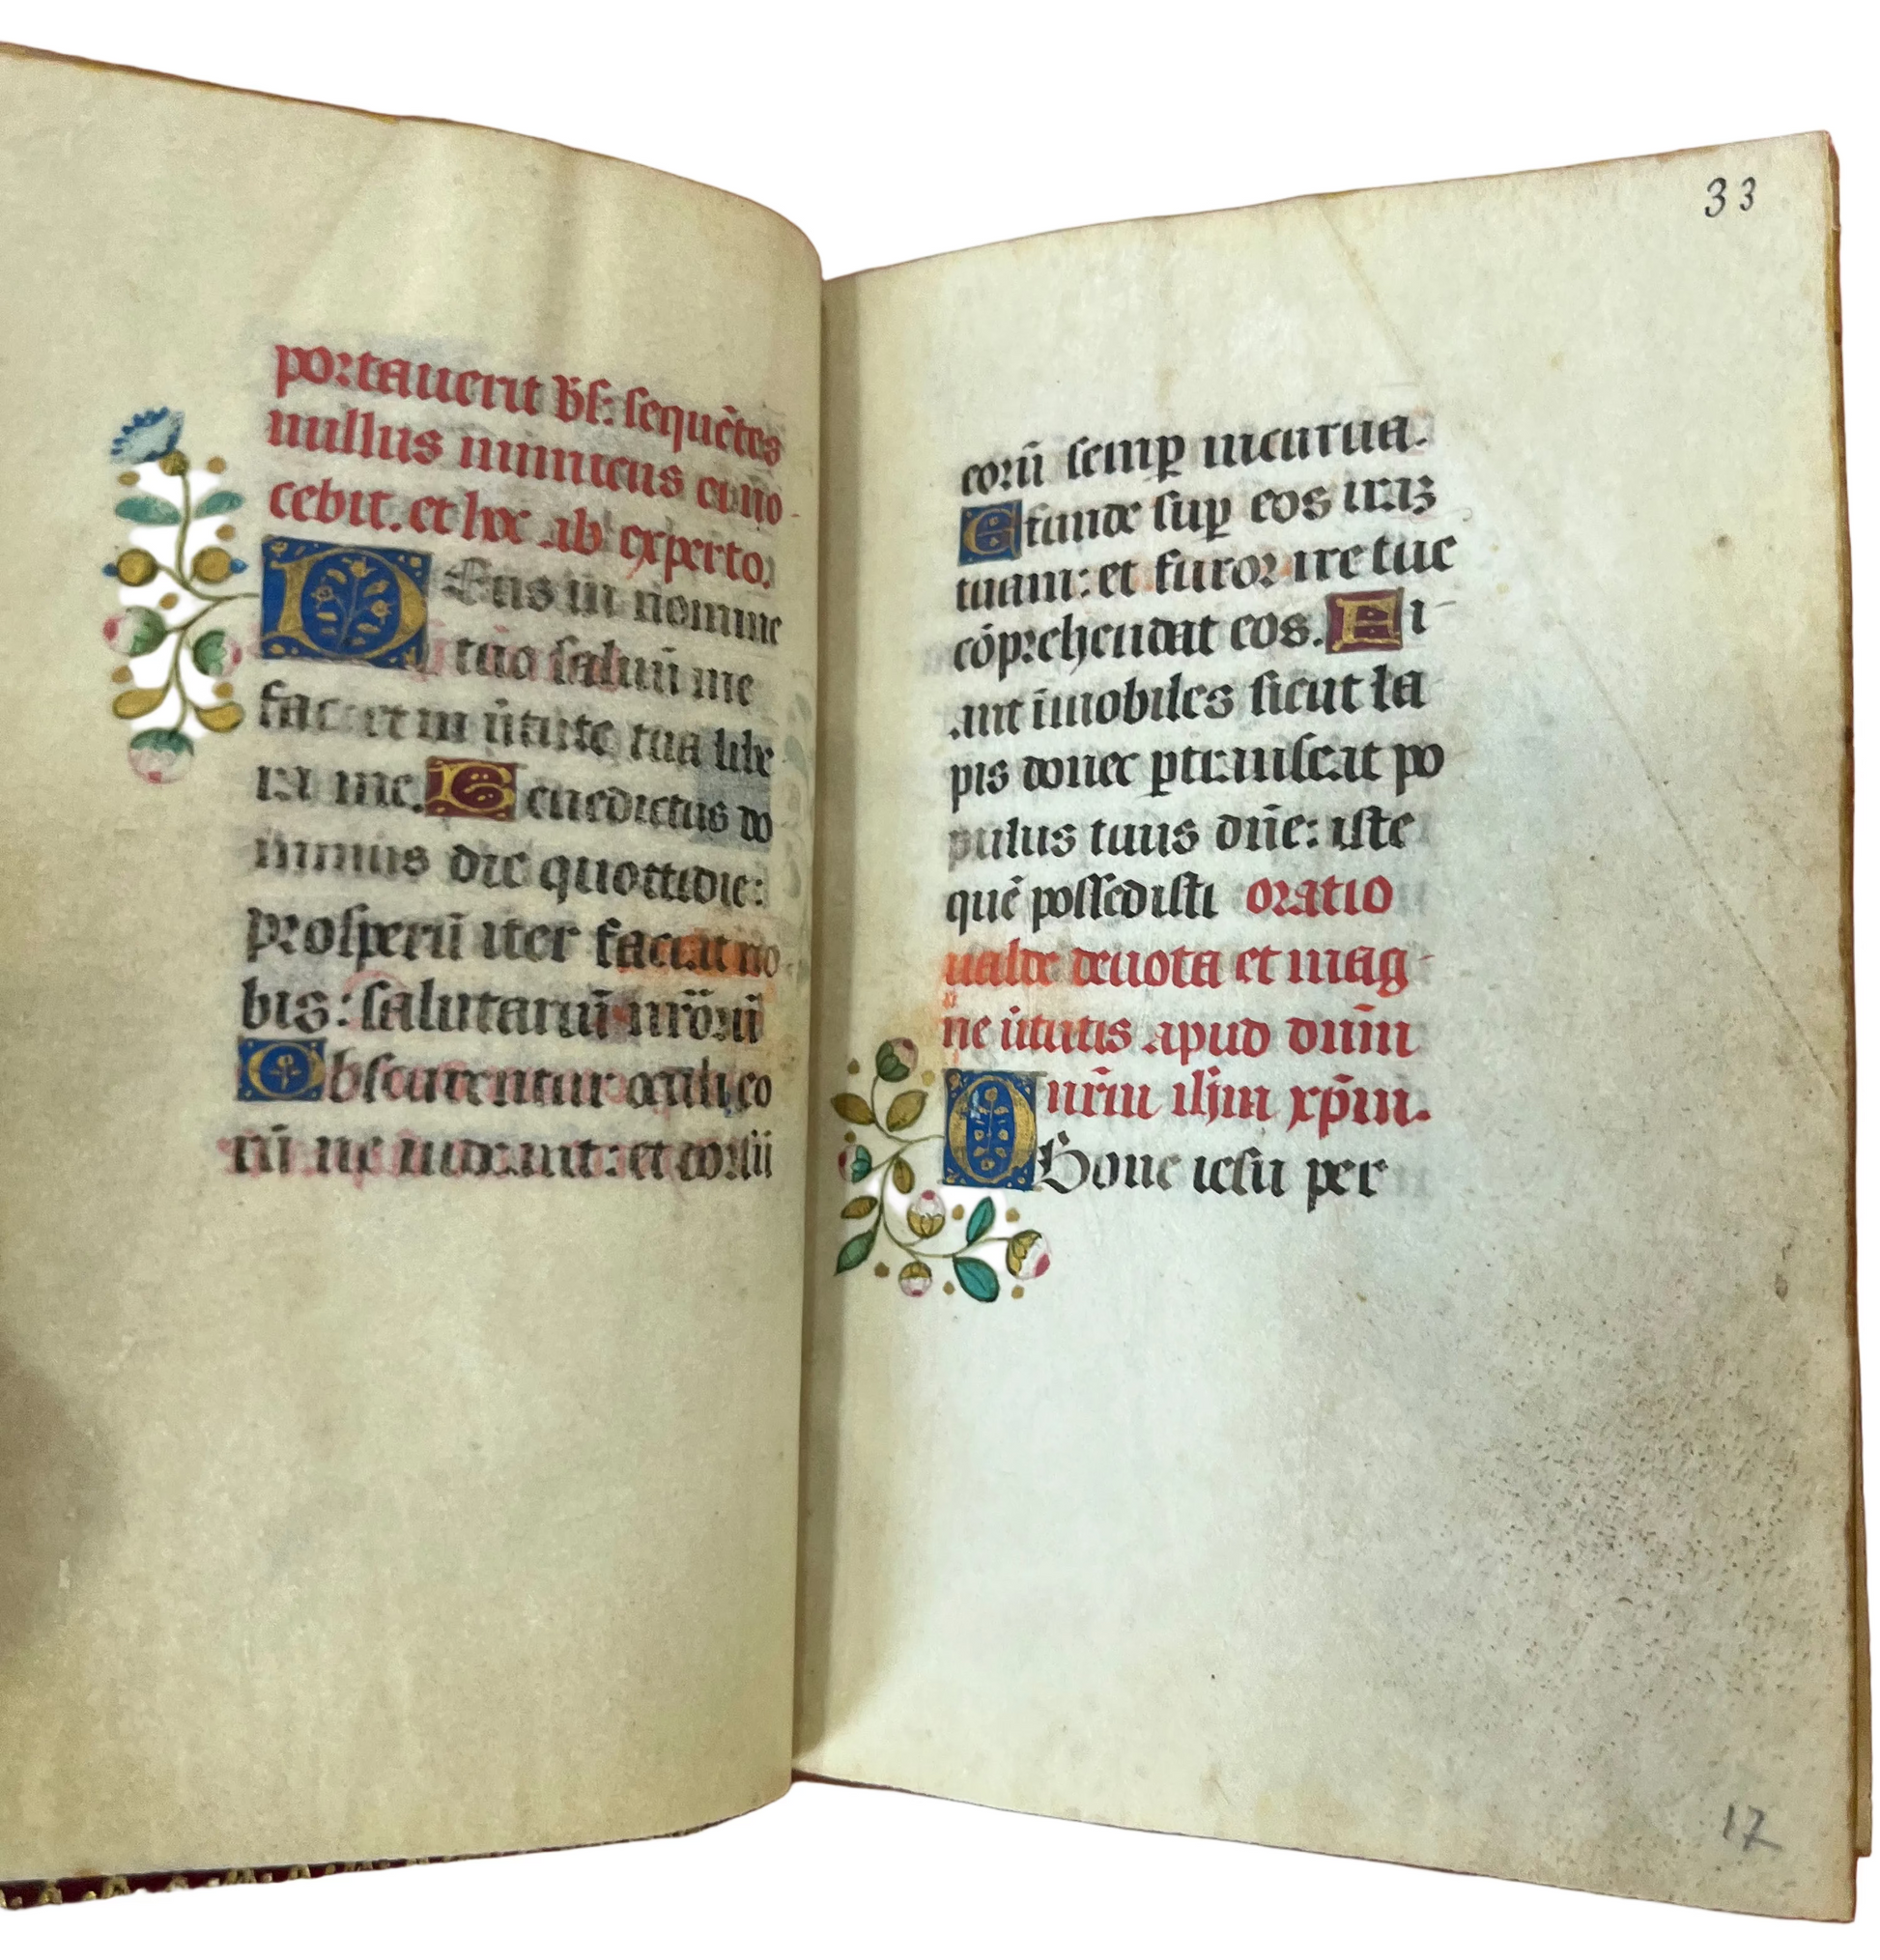 portauerit vs͛: sequētes
nullus inimicus ei no
cebit. et hoc ab experto.
DEus in nomine
tuo saluū me
fac: et in ūtute tua libe
ra me. Benedictus do
minus die quottidie:
prosperū iter faciat no
bis: salutariū nr̄orū
Obscurentur oculi eo
rū ne uideant: et dorsū
33
eorū semꝑ incurua.
Effunde suꝑ eos iraꝫ
tuam: et furor ire tue
cōprehendat eos. Fi
ant īmobiles sicut la
pis donec ꝑtranseat po
pulus tuus dn̄e: iste
quē possedisti oratio
ualde deuota et mag
ne ūtutis apud dnm̄
nr̄m ih̄m xp̄m.
O Bone iesu per
17